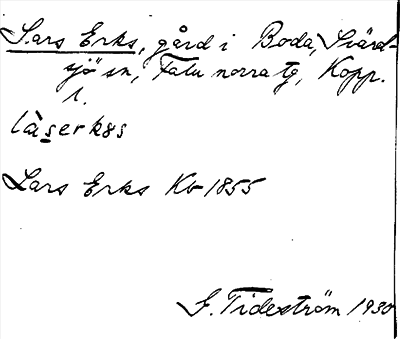 Lars Erks, gård i Boda, Svärd-
sjö sn, Falu norra tg, Kopp.
l.
làserks
Lars Erks Kb 1855
G. Tideström 1930